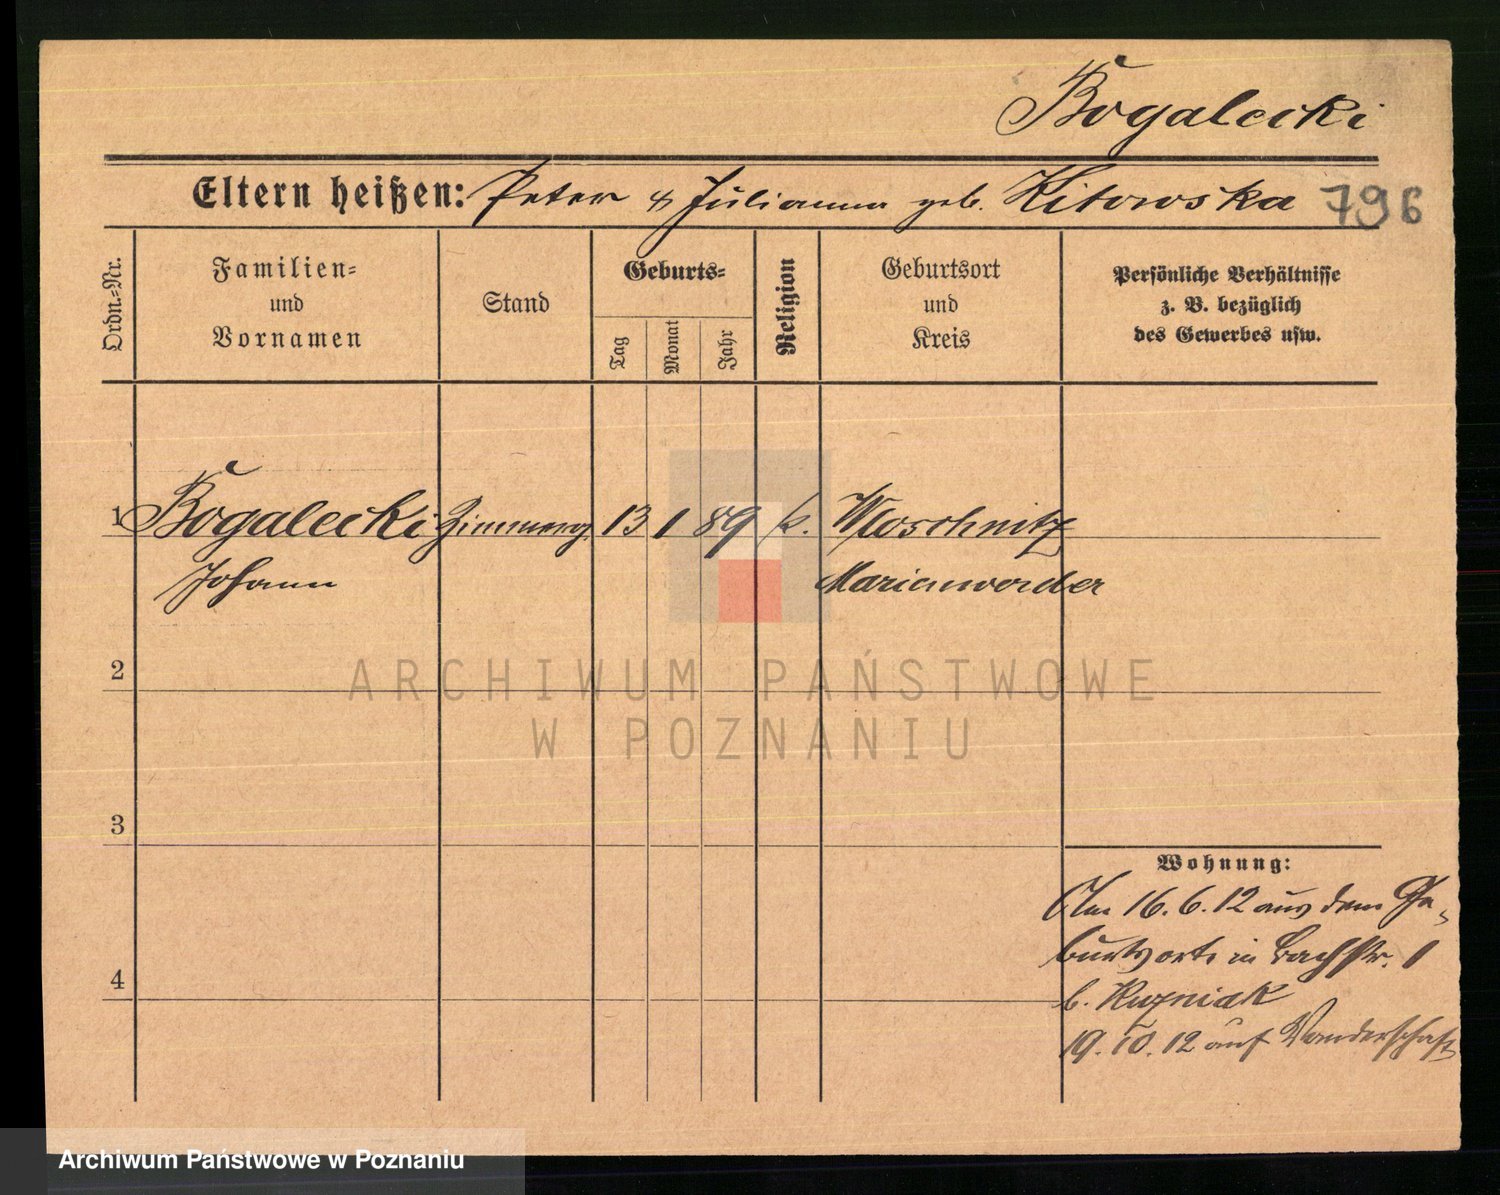 Bogalecki
Eltern heißen: Peter & Julianna geb. Kitowska 796
Ordn.=Nr.
Familien=
und
Vornamen
Stand
Geburts=
Tag
Monat
Jahr
Religion
Geburtsort
und
Kreis
Persönliche Verhältnisse
z. B. bezüglich
des Gewerbes usw.
1 Bogalecki Zimmerg. 13 1 89 k. Woschnitz
Johann Marienwerder
2
ARCHIWUM PAŃSTWOWE
W POZNANIU
3
Wohnung:
Am 16.6.12 aus dem Ge-
burtsorte in Bachstr. 1
4
b. Kuzniak
19. 10. 12 auf Wanderschaft
Archiwum Państwowe w Poznaniu